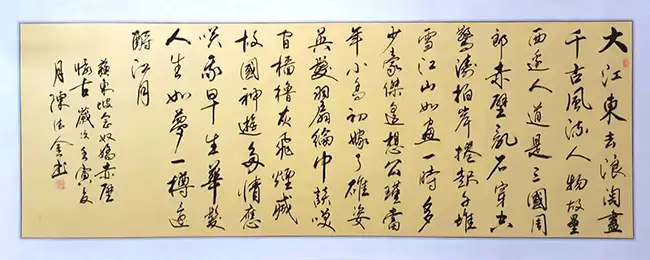 大江東去浪淘盡
千古風流人物故壘
西邊人道是三國周
郎赤壁亂石穿空
驚濤拍岸捲起千堆
雪江山如畫一時多
少豪傑遙想公瑾當
年小喬初嫁了雄姿
英發羽扇綸巾談笑
間檣櫓灰飛煙滅
故國神遊多情應
笑我早生華髮
人生如夢一樽還
酹江月
蘇東坡念奴嬌赤壁
懷古歲次壬寅夏
月陳法金書